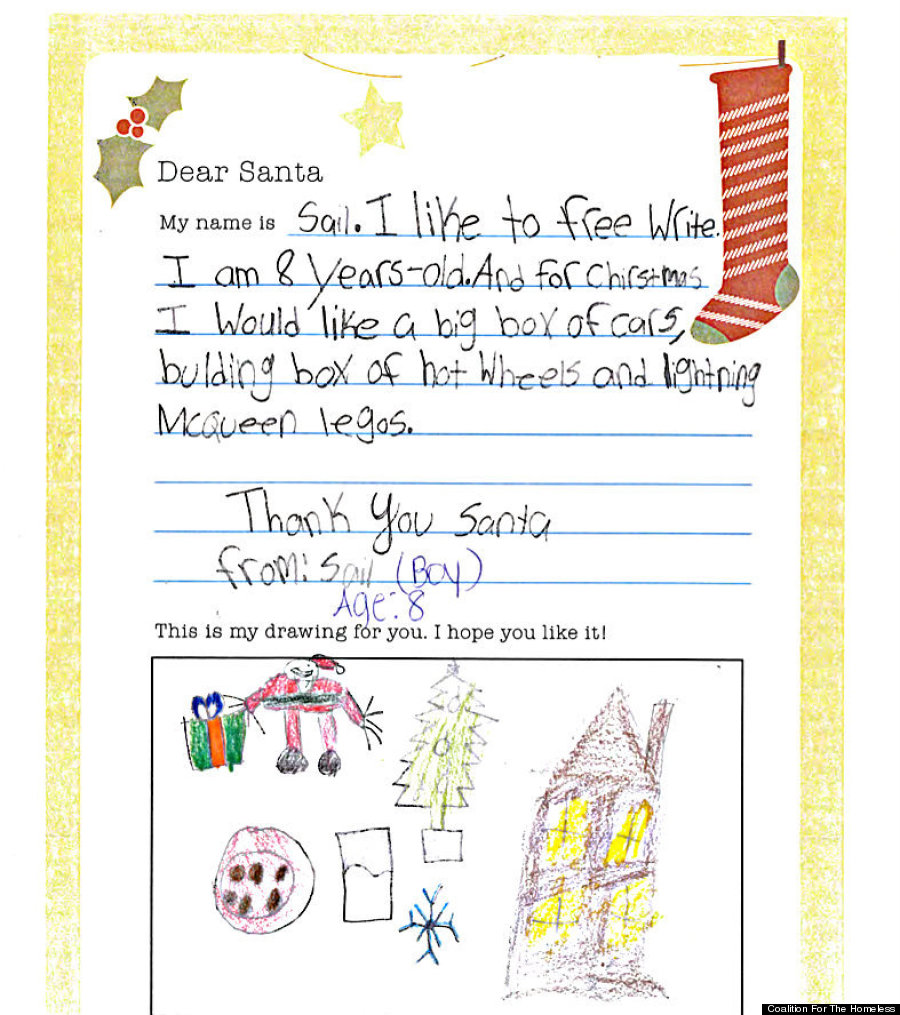 Dear Santa
My name is Sail. I like to free Write.
I am 8 years-old. And for Chirstmas
I Would like a big box of cars,
bulding box of hot Wheels and lightning
Mcqueen legos.
Thank You Santa
from: Sail (Boy)
Age: 8
This is my drawing for you. I hope you like it!
Coalition For The Homeless